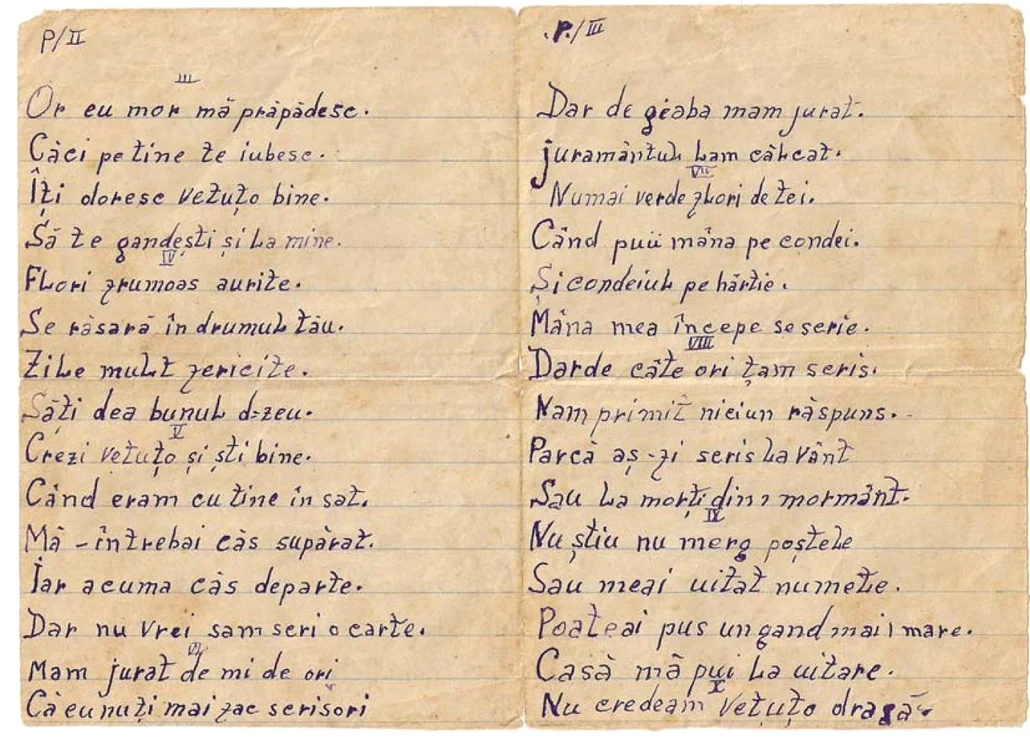 P/II
III
Or eu mor mă prăpădesc.
Căci pe tine te iubesc.
Îți doresc vetuțo bine.
Să te gandești și la mine.
IV
Flori frumoas aurite.
Se răsară în drumul tău.
Zile mult fericite.
Săți dea bunul d-zeu.
V
Crezi vetuțo și sti bine.
Când eram cu tine în sat.
Mă-întrebai căs supărat.
Iar acuma căs departe.
Dar nu vrei sam scri o carte.
VI
Mam jurat de mi de ori
Că eu nuți mai fac scrisori
P./III
Dar de geaba mam jurat.
juramântul lam călcat.
VII
Numai verde flori de tei.
Când puii mâna pe condei.
Și condeiul pe hârtie.
Mâna mea începe se scrie.
VIII
Dar de câte ori țam scris.
Nam primit niciun răspuns.
Parcă aș-fi scris la vânt
Sau la morți din mormânt.
IX
Nu știu nu merg poștele
Sau meai uitat numele.
Poate ai pus un gand mai mare.
Casă mă pui la uitare.
X
Nu credeam vetuțo dragă.